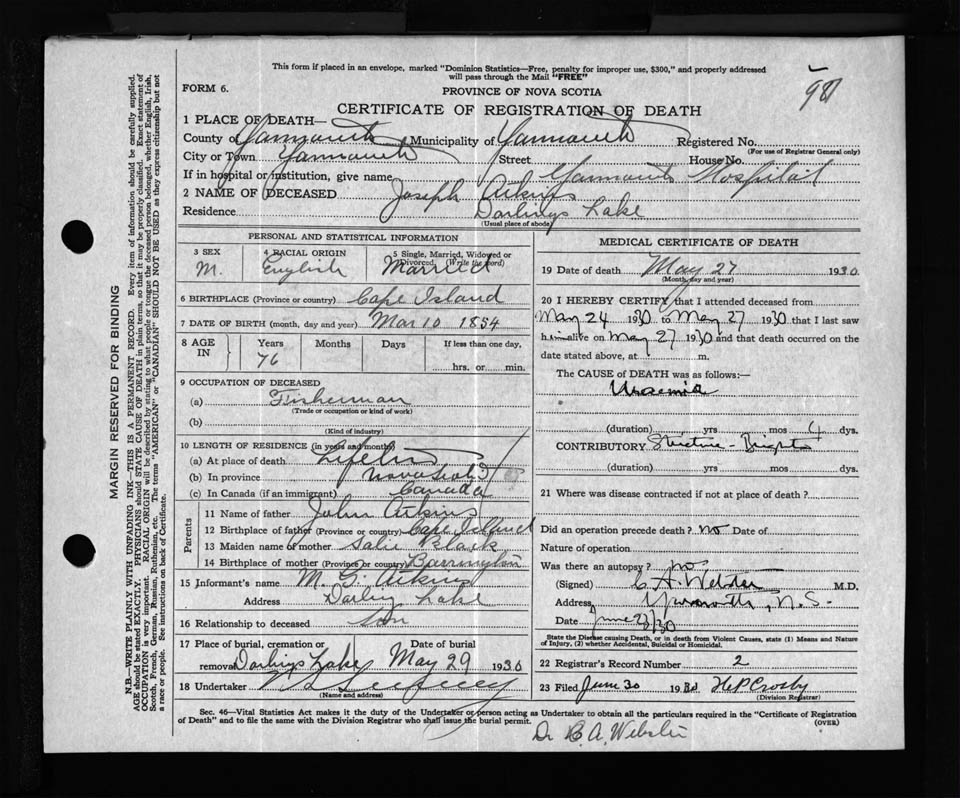 This form if placed in an envelope, marked "Dominion Statistics—Free, penalty for improper use, $300," and properly addressed
will pass through the Mail "FREE"
FORM 6.
PROVINCE OF NOVA SCOTIA
CERTIFICATE OF REGISTRATION OF DEATH
1 PLACE OF DEATH—
County of Yarmouth Municipality of Yarmouth Registered No.
(For use of Registrar General only)
City or Town Yarmouth Street House No.
If in hospital or institution, give name Yarmouth Hospital
2 NAME OF DECEASED Joseph Atkins
Residence Darlings Lake
(Usual place of abode)
PERSONAL AND STATISTICAL INFORMATION
3 SEX M.
4 RACIAL ORIGIN English
5 Single, Married, Widowed or Divorced (Write the word) Married
6 BIRTHPLACE (Province or country) Cape Island
7 DATE OF BIRTH (month, day and year) Mar 10 1854
8 AGE IN Years Months Days If less than one day,
76 hrs. or min.
9 OCCUPATION OF DECEASED
(a) Fisherman
(Trade or occupation or kind of work)
(b)
(Kind of industry)
10 LENGTH OF RESIDENCE (in years and months)
(a) At place of death Lifetime
(b) In province Nova Scotia
(c) In Canada (if an immigrant) Canada
Parents
11 Name of father John Atkins
12 Birthplace of father (Province or country) Cape Island
13 Maiden name of mother
14 Birthplace of mother (Province or country) Barrington
15 Informant's name M. G. Atkins
Address Darling Lake
16 Relationship to deceased son
17 Place of burial, cremation or Date of burial
removal Darlings Lake May 29 1930
18 Undertaker
(Name and address)
MEDICAL CERTIFICATE OF DEATH
19 Date of death May 27 1930
(Month, day and year)
20 I HEREBY CERTIFY that I attended deceased from
May 24 1930 to May 27 1930 that I last saw
him alive on May 27 1930 and that death occurred on the
date stated above, at m.
The CAUSE of DEATH was as follows:—
Uraemia
(duration) yrs mos 4 dys.
CONTRIBUTORY Stricture - Brights
(duration) yrs mos dys.
21 Where was disease contracted if not at place of death?
Did an operation precede death? no Date of
Nature of operation
Was there an autopsy? no
(Signed) C A. Webster M.D.
Address Yarmouth, N.S.
Date June 2/30
State the Disease causing Death, or in death from Violent Causes, state (1) Means and Nature
of Injury, (2) whether Accidental, Suicidal or Homicidal.
22 Registrar's Record Number 2
23 Filed June 30 1930 H P Crosby
(Division Registrar)
Sec. 46—Vital Statistics Act makes it the duty of the Undertaker or person acting as Undertaker to obtain all the particulars required in the "Certificate of Registration
of Death" and to file the same with the Division Registrar who shall issue the burial permit.
(OVER)
Dr C. A. Webster
MARGIN RESERVED FOR BINDING
N.B.—WRITE PLAINLY WITH UNFADING INK—THIS IS A PERMANENT RECORD. Every item of information should be carefully supplied.
AGE should be stated EXACTLY. PHYSICIANS should STATE CAUSE OF DEATH in plain terms, so that it may be properly classified. Exact statement of
OCCUPATION is very important. RACIAL ORIGIN will be described by stating to what people or tongue the deceased person belonged, whether English, Irish,
Scotch, French, German, Russian, Ruthenian, etc. The terms "AMERICAN" or "CANADIAN" SHOULD NOT BE USED as they express citizenship but not
a race or people. See instructions on back of Certificate.